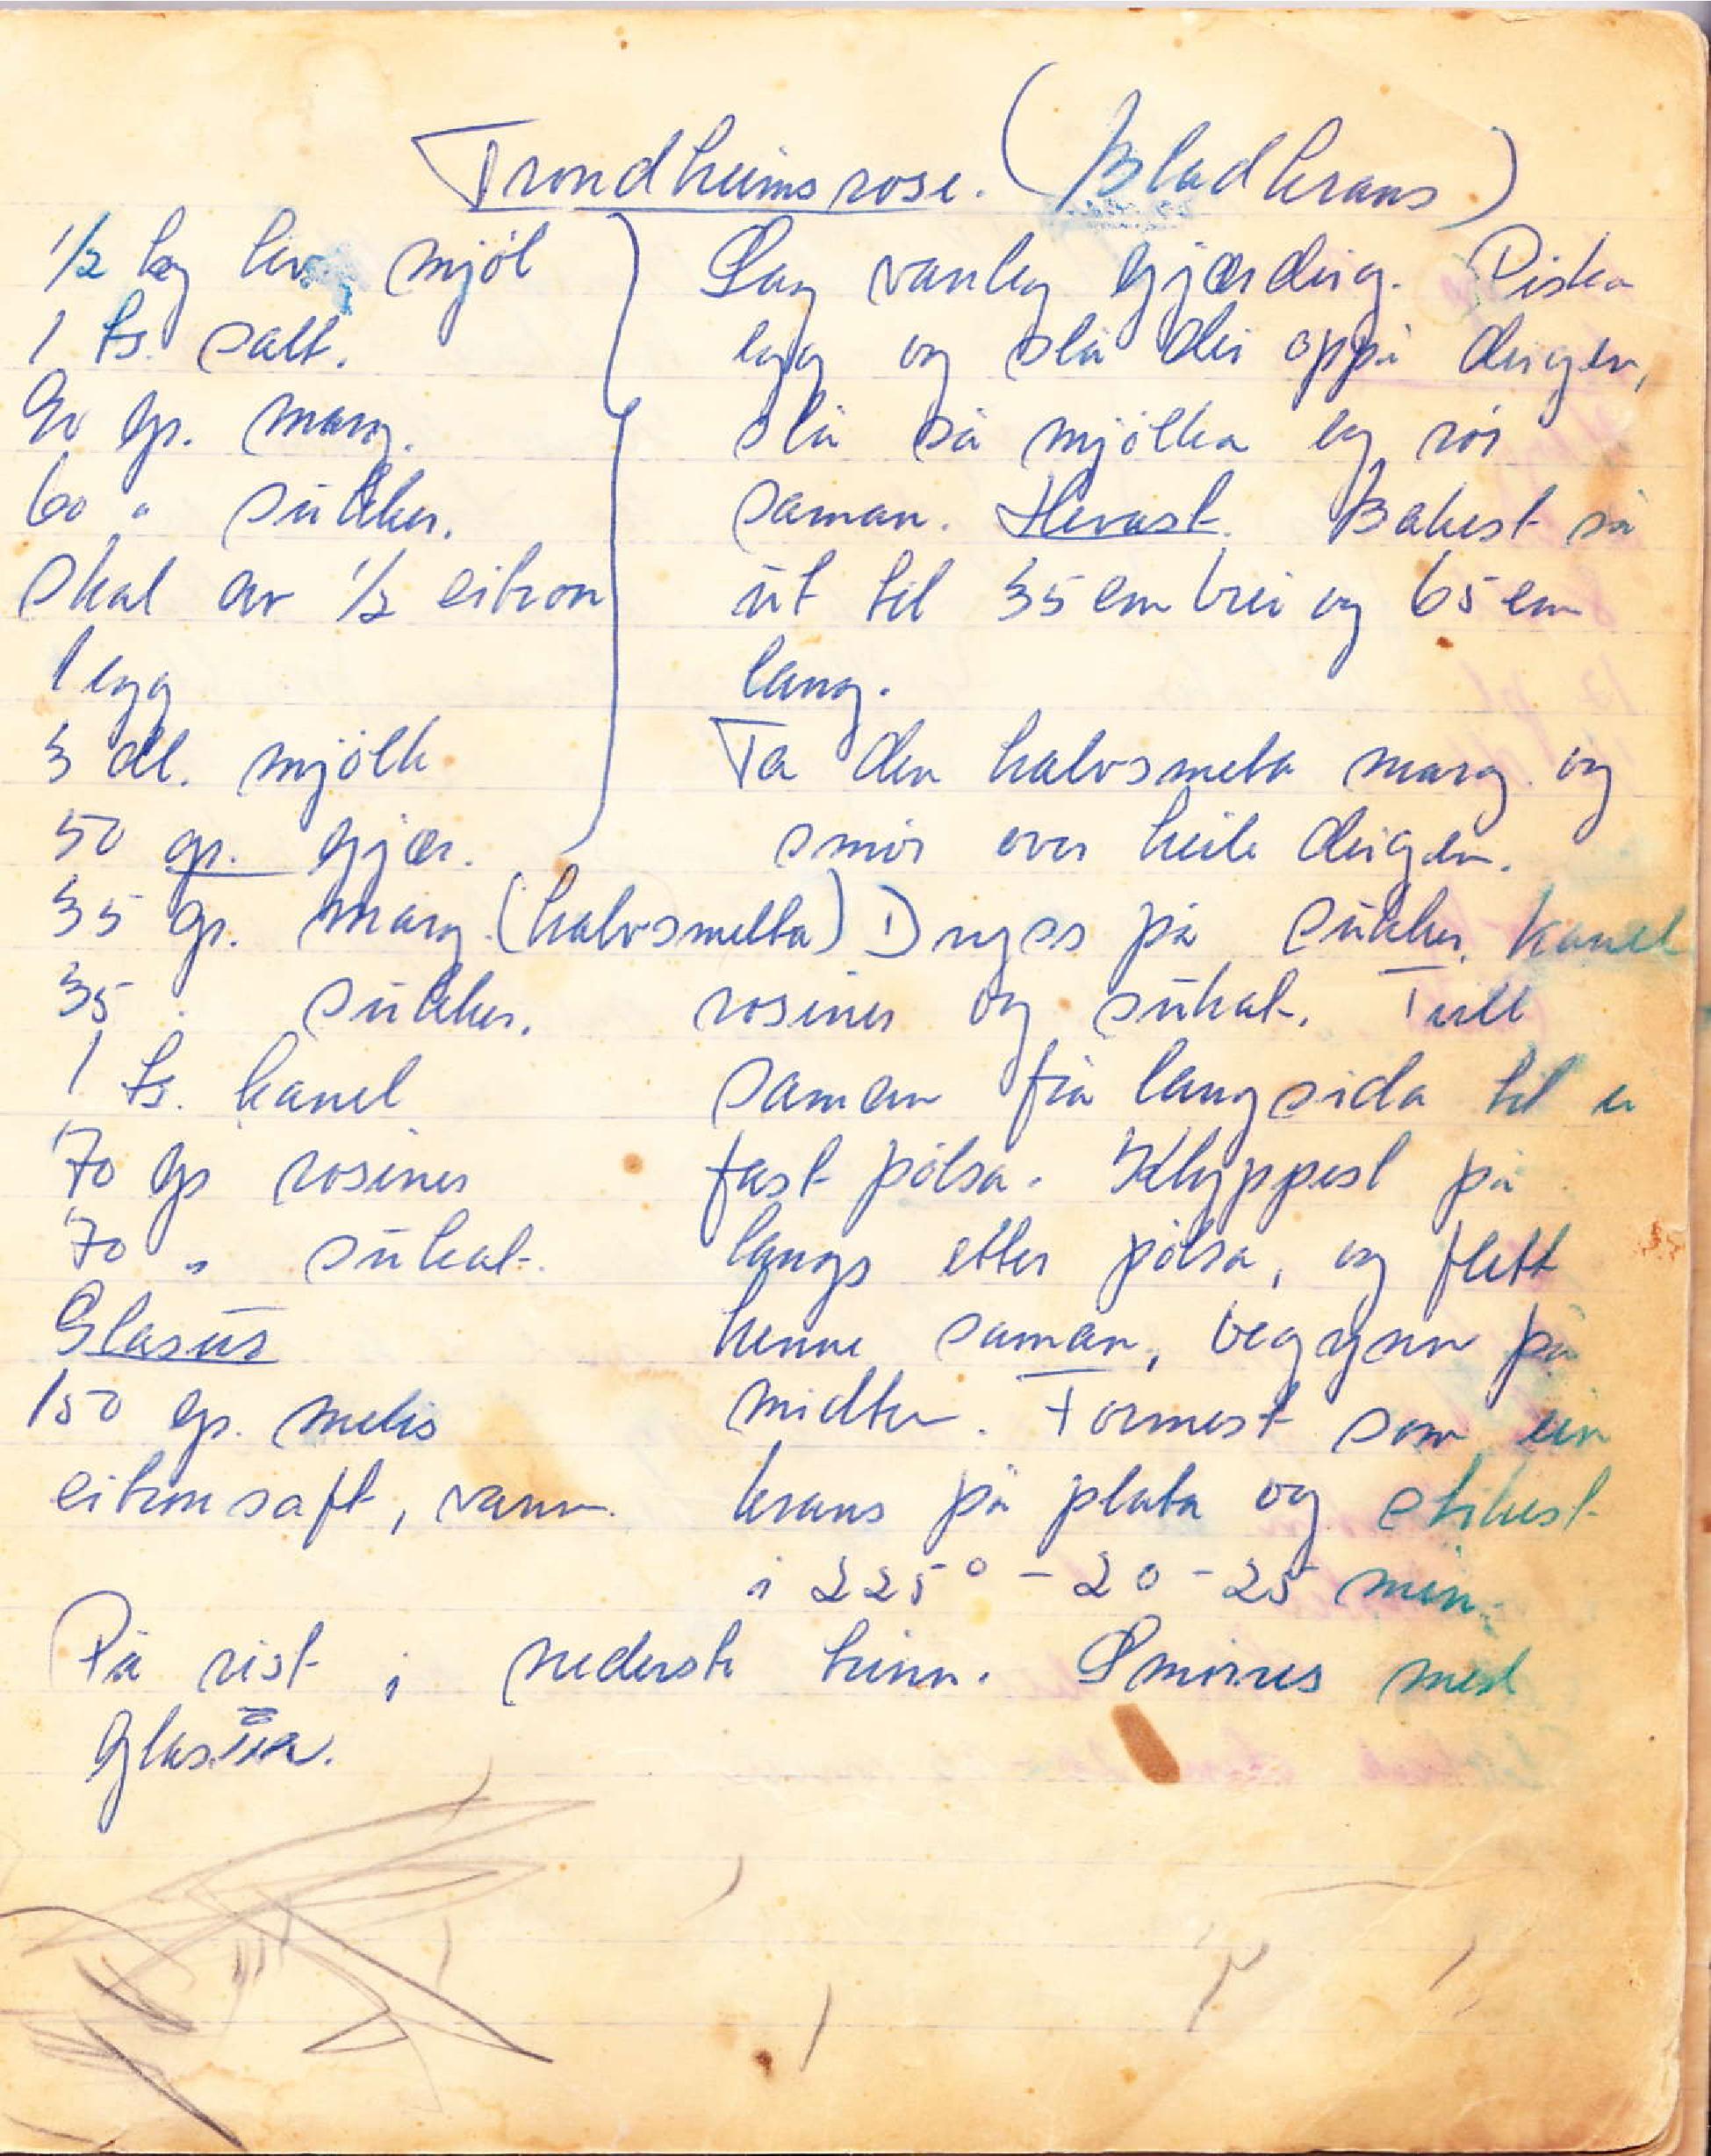 Trondheimsrose. (Bladkrans)
1/2 kg kv. mjöl
1 ts. salt.
90 gr. marg.
60 " sukker.
Skal av 1/2 citron
1 egg
3 dl. mjölk
50 gr. gjær.
35 gr. marg. (halvsmelta)
35 " sukker.
1 ts. kanel
70 gr rosiner
70 " sukat.
Glasur
150 gr. melis
citronsaft, vann.
Lag vanleg gjærdeig. Piska
egg og slå dei oppi deigen,
slå så mjölka og rör
saman. Hevast. Bakest så
ut til 35 cm brei og 65 cm
lang.
Ta den halvsmelta marg. og
smör over heile deigen.
Dryss på sukker, kanel
rosiner og sukat. Tull
saman frå langsida til ei
fast pölsa. Klyppest på
langs etter pölsa, og flett
henne saman, begynn på
midten. Formest som ein
krans på plata og stikest
i 225° - 20 - 25 min.
På rist i nederste hinn. Smörres med
Glasur.